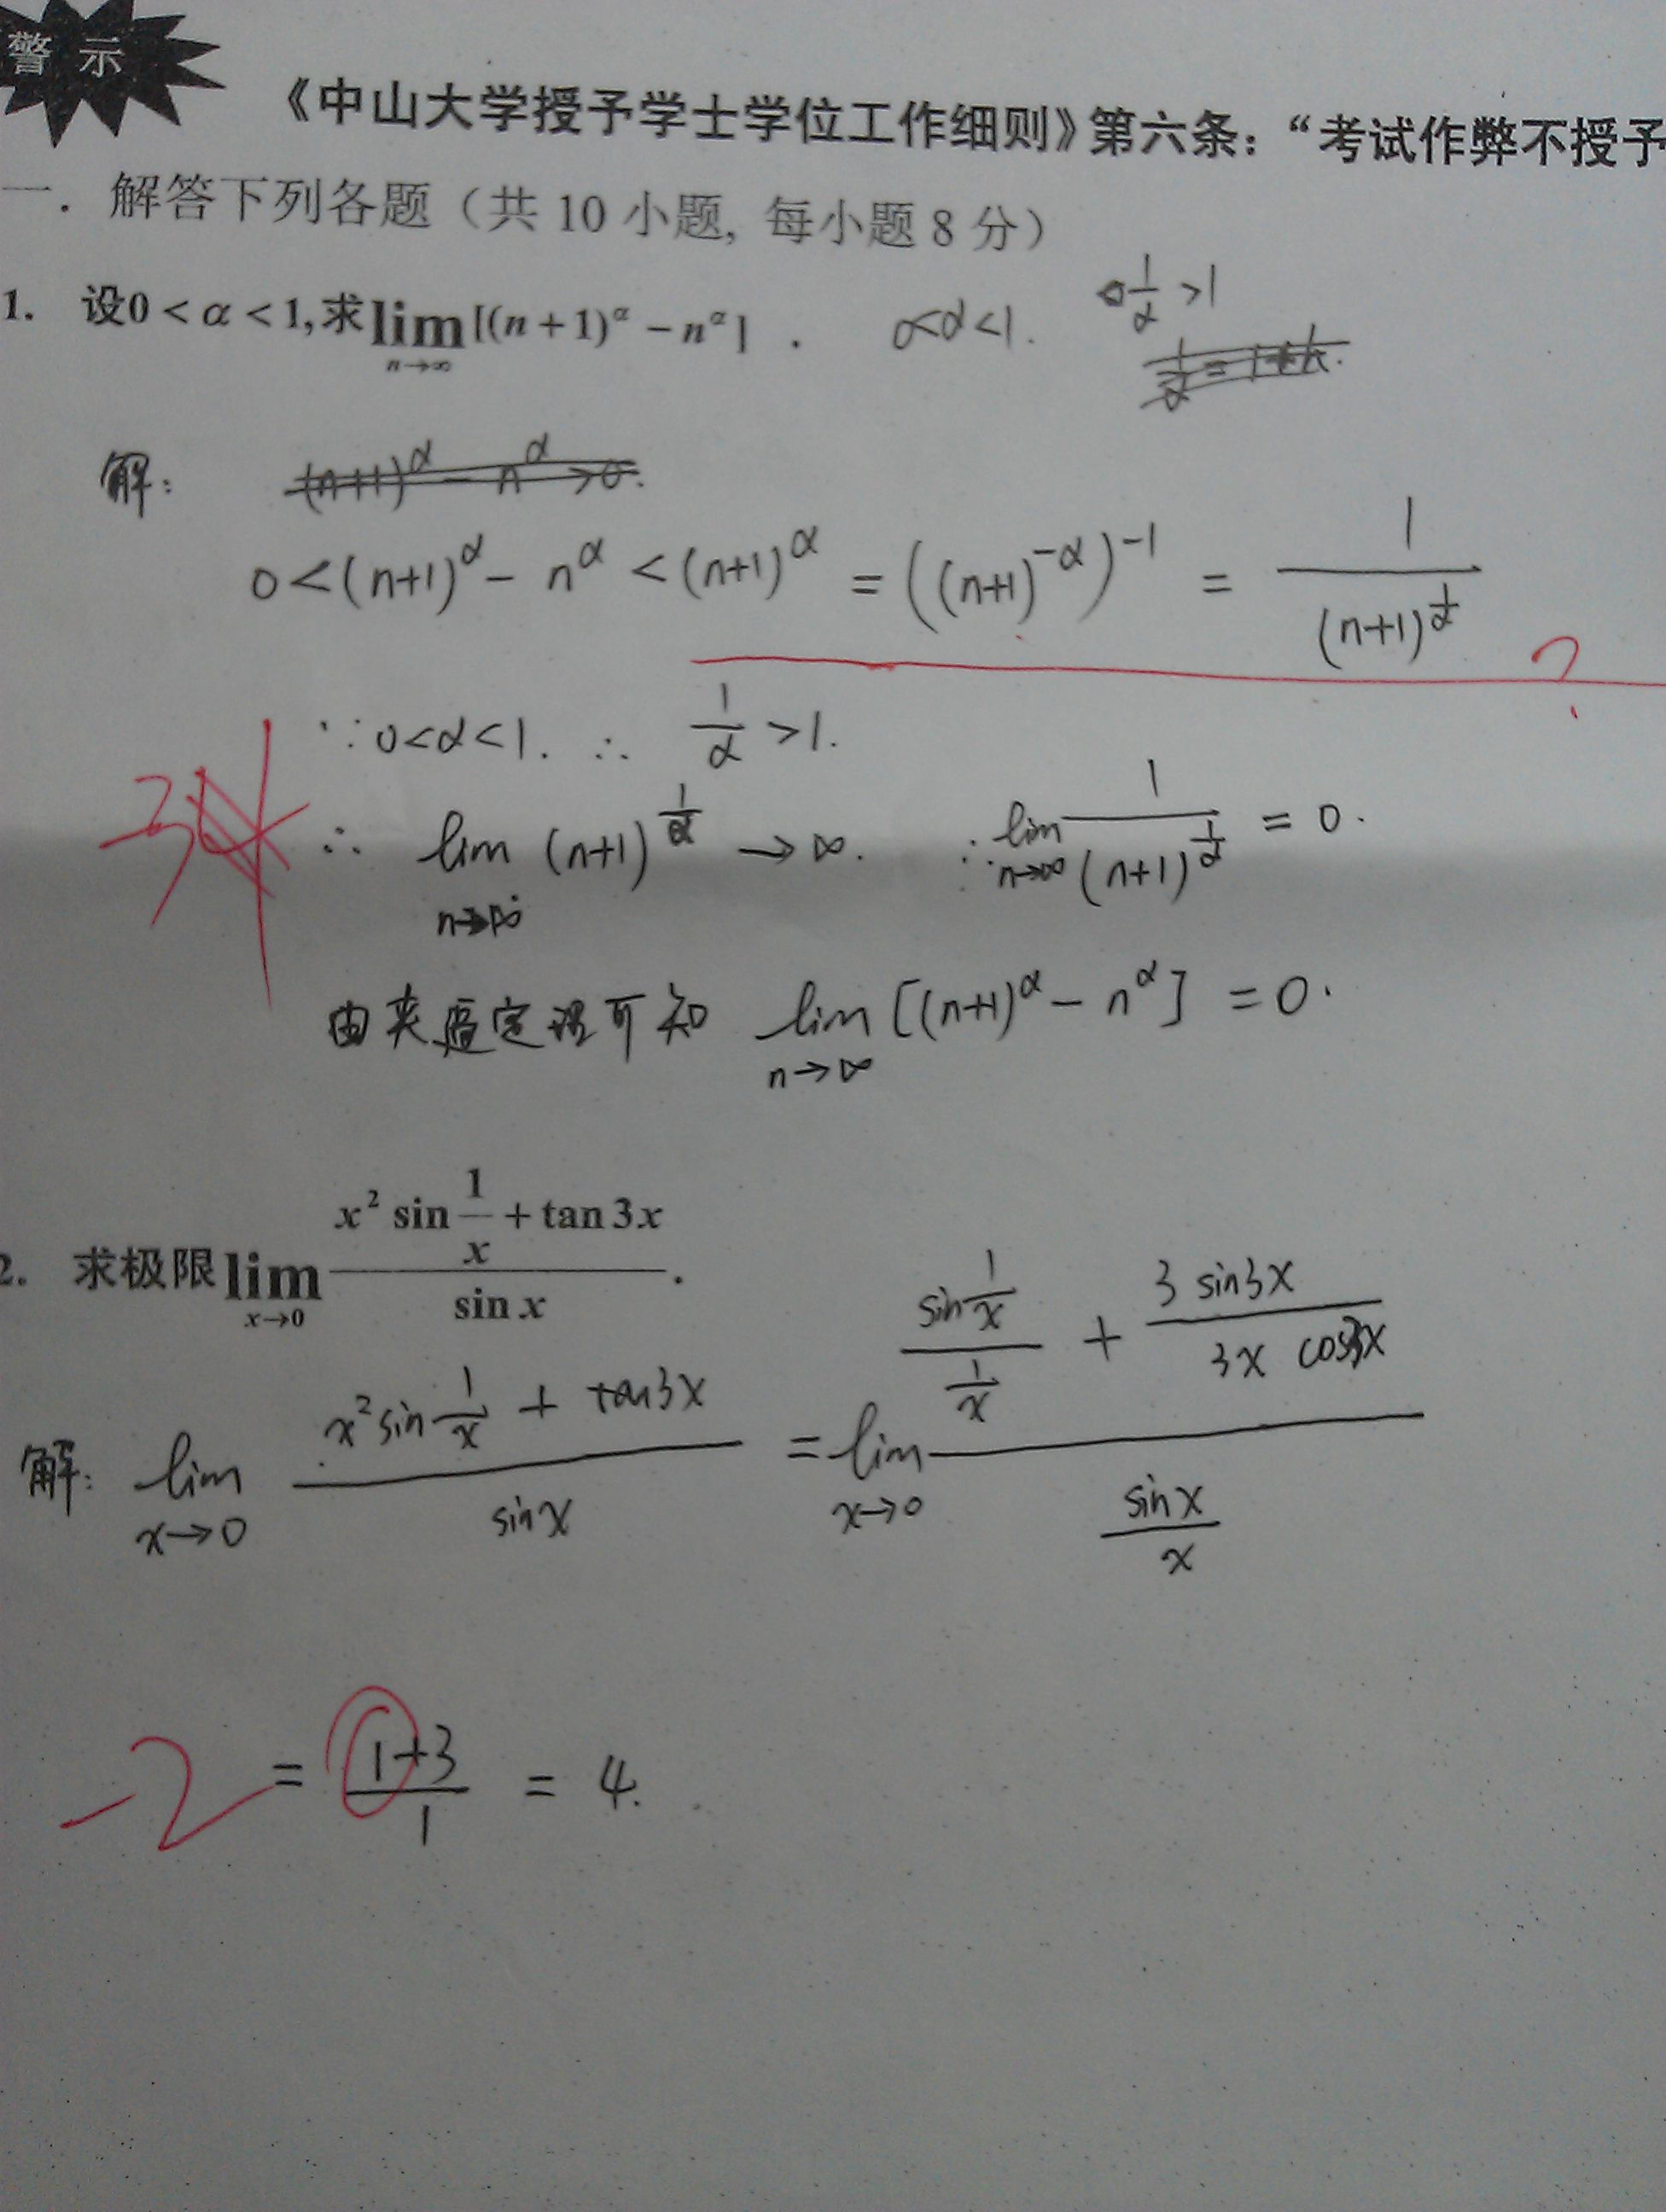 警 示
《中山大学授予学士学位工作细则》第六条：“考试作弊不授予
一. 解答下列各题（共 10 小题, 每小题 8 分）
1. 设0 < α < 1,求 lim n→∞ [(n + 1)^α − n^α] .
0<α<1. 1/α >1
解:
0 < (n+1)^α − n^α < (n+1)^α = ((n+1)^−α)^−1 = 1/(n+1)^(1/α) ?
∵ 0<α<1. ∴ 1/α >1.
∴ lim n→∞ (n+1)^(1/α) → ∞. ∴ lim n→∞ 1/(n+1)^(1/α) = 0.
由夹逼定理可知 lim n→∞ [(n+1)^α − n^α] = 0.
2. 求极限 lim x→0 (x² sin 1/x + tan 3x)/(sin x).
解: lim x→0 (x² sin 1/x + tan3x)/(sinx) = lim x→0 ((sin 1/x)/(1/x) + (3 sin3x)/(3x cos3x))/((sinx)/x)
−2 = (1+3)/1 = 4.